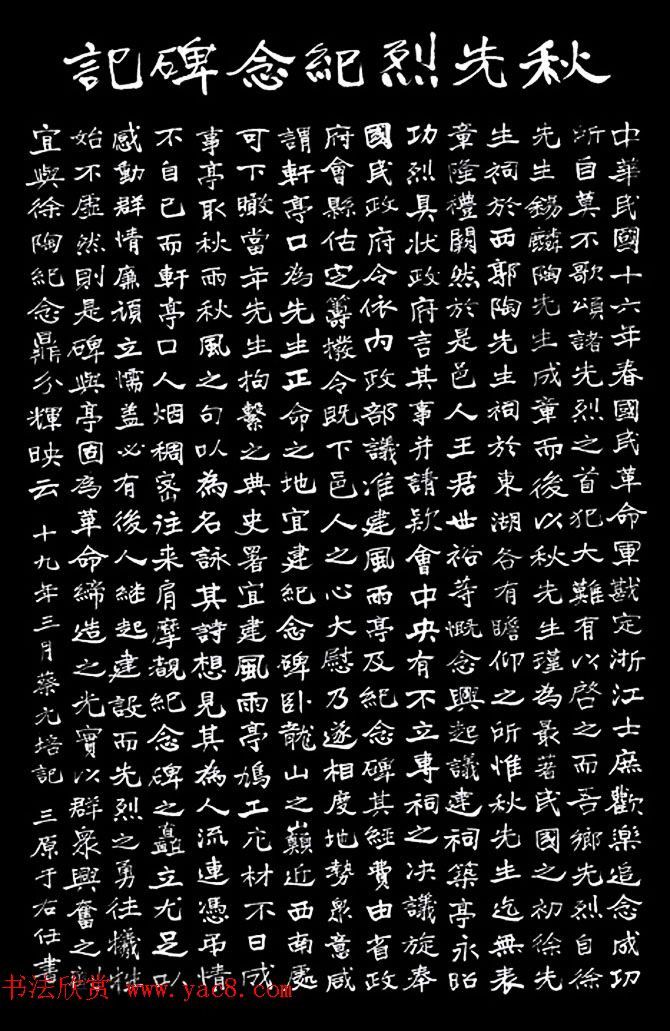 秋先烈紀念碑記
中華民國十六年春國民革命軍戡定浙江士庶歡樂追念成功
所自莫不歌頌諸先烈之首犯大難有以啓之而吾鄉先烈自徐
先生錫麟陶先生成章而後以秋先生瑾為最著民國之初徐先
生祠於西郭陶先生祠於東湖各有瞻仰之所惟秋先生迄無表
章隆禮闕然於是邑人王君世裕等慨念興起議建祠築亭永昭
功烈具狀政府言其事并請欵會中央有不立專祠之决議旋奉
國民政府令依內政部議准建風雨亭及紀念碑其經費由省政
府會縣估定籌撥令既下邑人之心大慰乃遂相度地勢衆意咸
謂軒亭口為先生正命之地宜建紀念碑卧龍山之巔近西南處
可下瞰當年先生拘繫之典史署宜建風雨亭鳩工庀材不日成
事亭取秋雨秋風之句以為名詠其詩想見其為人流連憑弔情
不自已而軒亭口人烟稠密往來肩摩覩紀念碑之矗立尤足以
感動群情廉頑立懦盖必有後人继起建設而先烈之勇往犧牲
始不虛然則是碑與亭固為革命締造之光實以群衆興奮之
宜與徐陶紀念鼎分輝映云 十九年三月蔡元培記 三原于右任書
书法欣赏 www.yac8.com